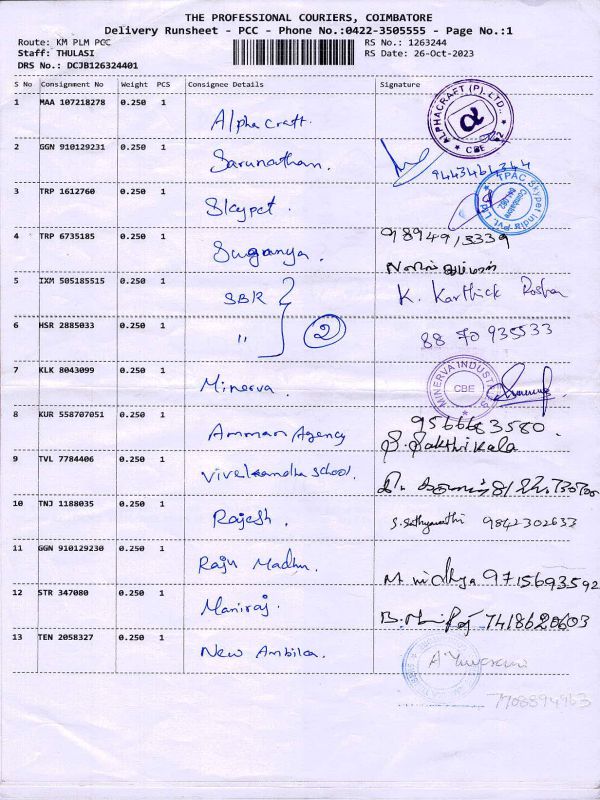 THE PROFESSIONAL COURIERS, COIMBATORE
Delivery Runsheet - PCC - Phone No.:0422-3505555 - Page No.:1
Route: KM PLM PCC RS No.: 1263244
Staff: THULASI RS Date: 26-Oct-2023
DRS No.: DCJB126324401
S No Consignment No Weight PCS Consignee Details Signature
1 MAA 107218278 0.250 1 Alpha craft. ALPHACRAFT (P). LTD., CBE
2 GGN 910129231 0.250 1 Sarunathan. 9443461344
3 TRP 1612760 0.250 1 Skypet. TPAC Skypet India Pvt Ltd Coimbatore
4 TRP 6735185 0.250 1 Suganya.
5 IXM 505185515 0.250 1 SBR K. Karthick
6 HSR 2885033 0.250 1 " 2 88 70 935533
7 KLK 8043099 0.250 1 Minerva. MINERVA INDUSTRIES CBE
8 KUR 558707051 0.250 1 Amman Agency 9566683580.
S. Sakthikala
9 TVL 7784406 0.250 1 Vivekandha school.
10 TNJ 1188035 0.250 1 Rajesh. 9842302633
11 GGN 910129230 0.250 1 Raju Madhu. M. nidhya 9715693592
12 STR 347080 0.250 1 Maniraj. 7418620603
13 TEN 2058327 0.250 1 New Ambika.
7708894963